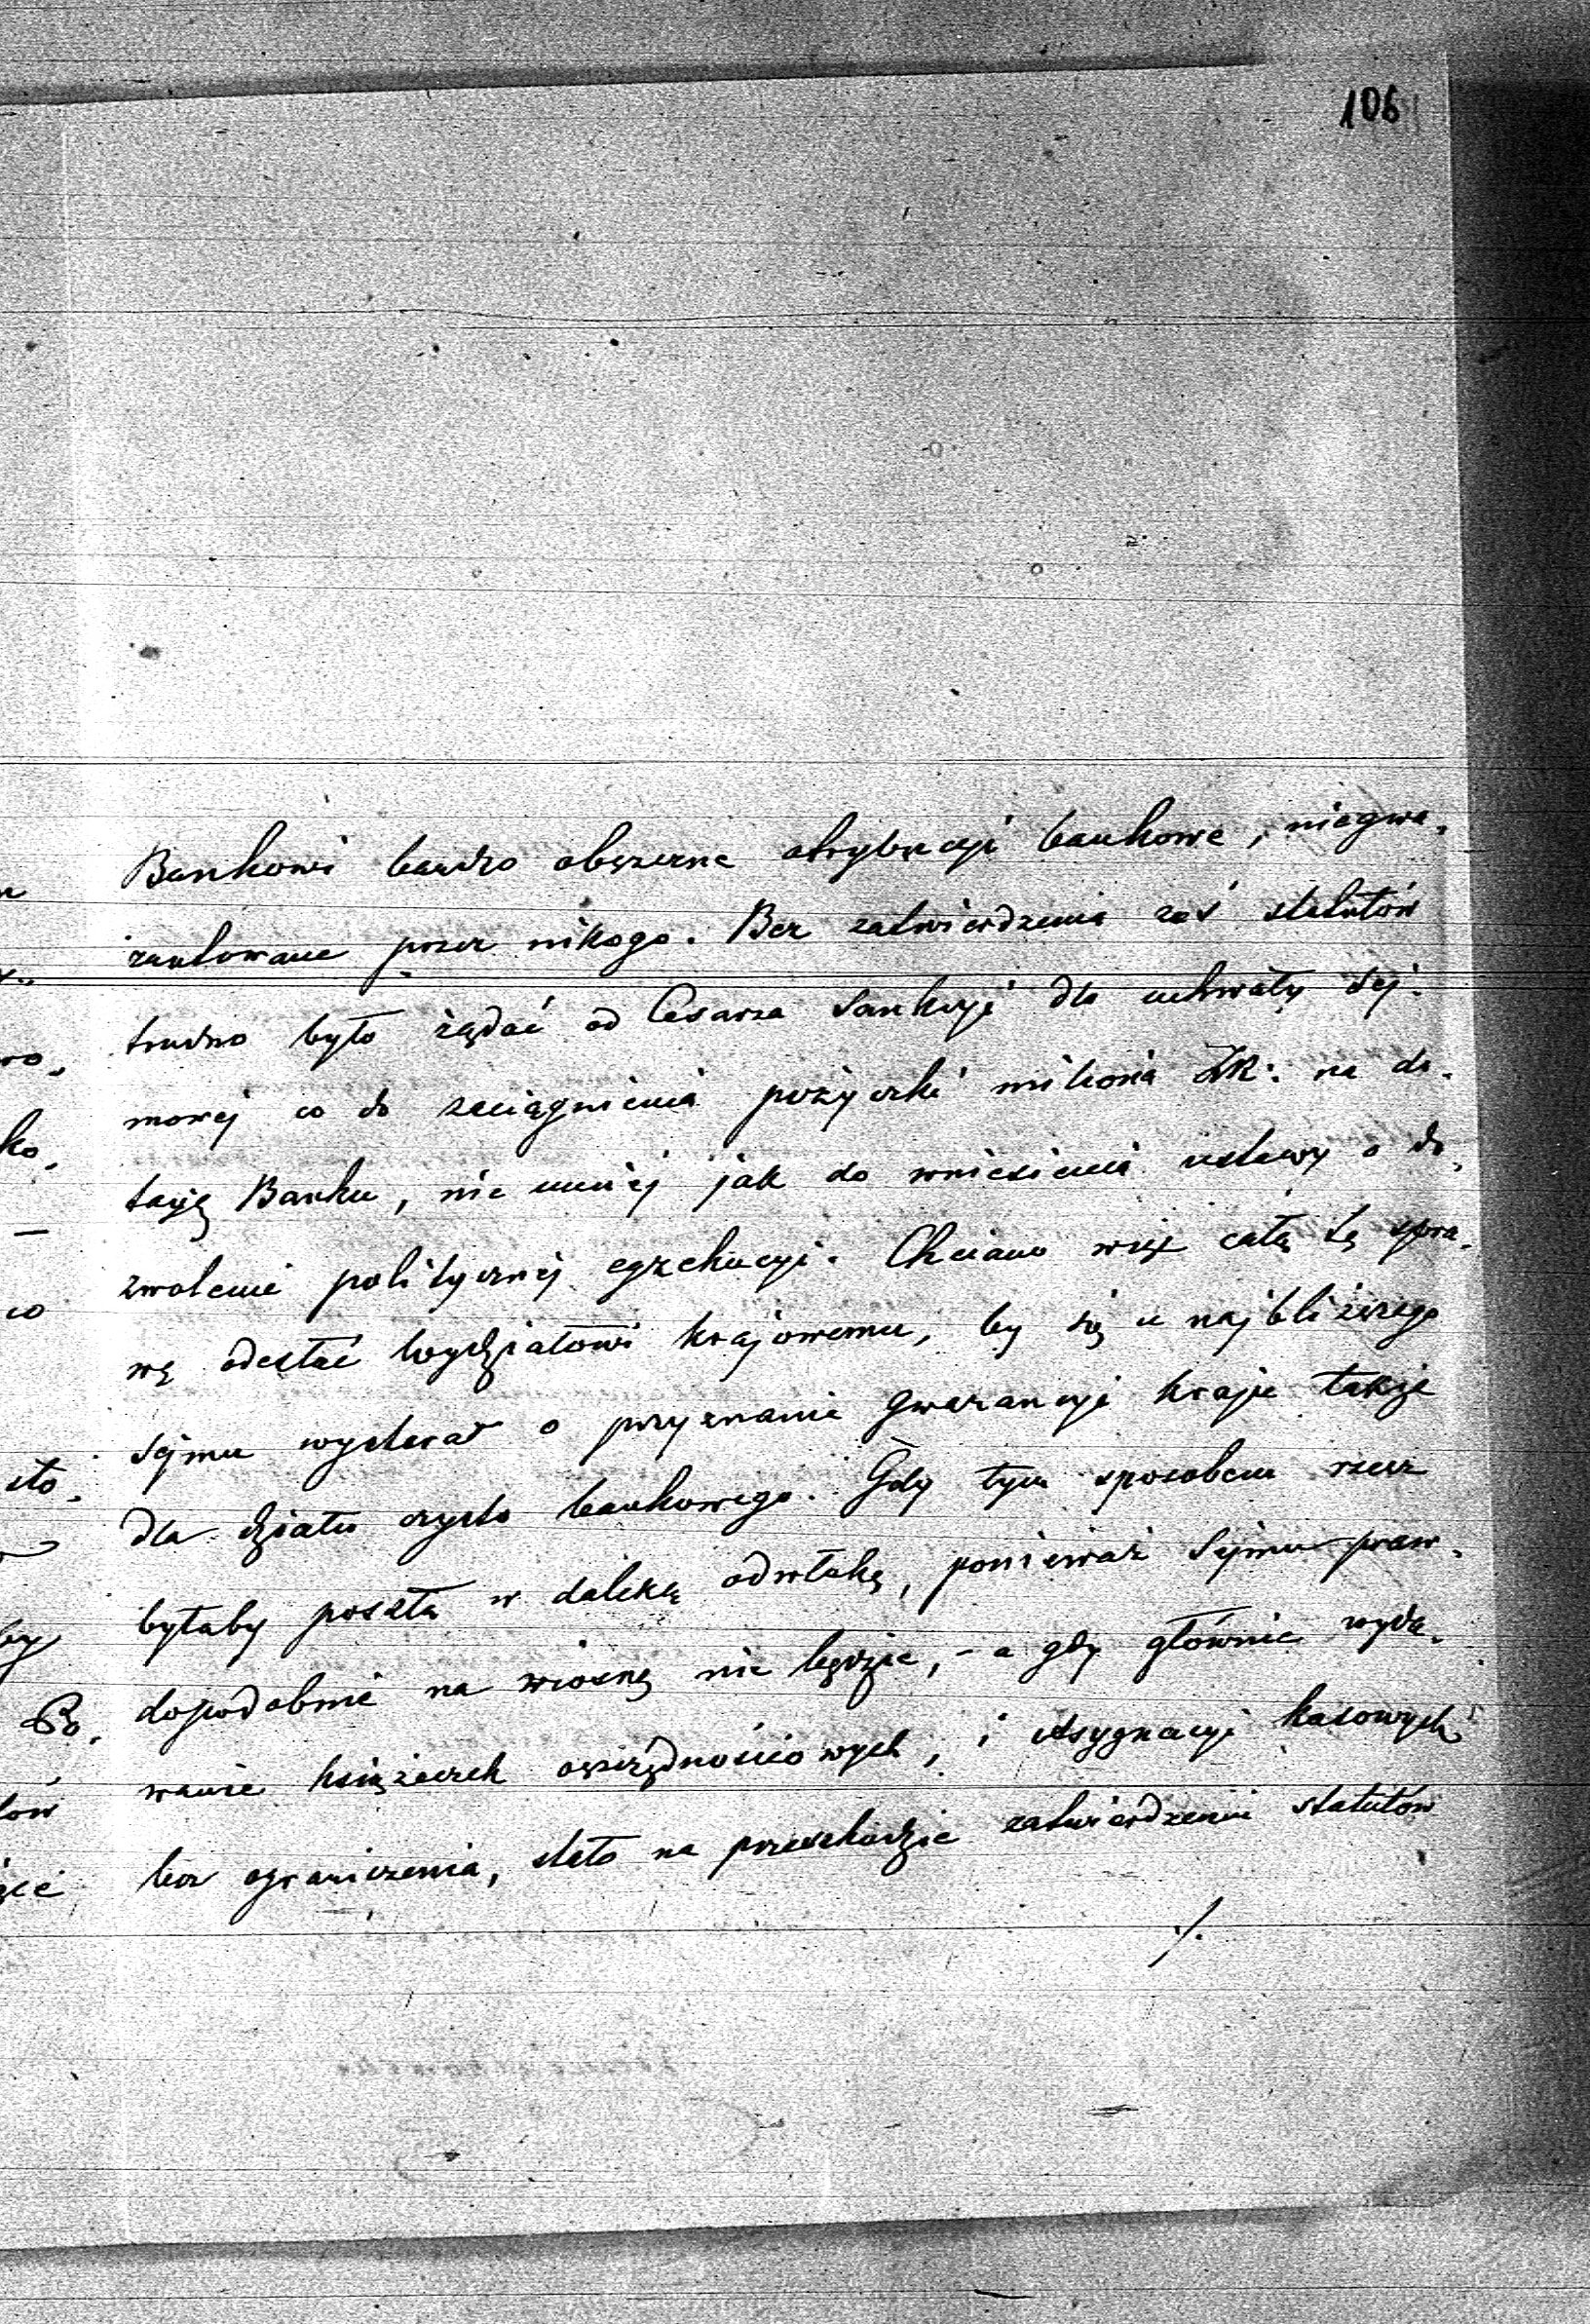 106
Bankowi bardzo obszerne atrybucyi bankowe, niegwa-
rantowane przez nikogo. Bez zatwierdzenia zaś statutów
trudno było żądać od Cesarza Sankcyi dla uchwały Sej-
mowej co do zaciągnienia pożyczki miliona ZR: na do-
tacyę Banku, nie mniej jak do wniesienia ustawy o do-
zwolenie politycznej egzekucyi. Chciano więc całą tę spra-
wę odesłać Wydziałowi krajowemu, by się u najbliższego
Sejmu wystarał o przyznanie gwarancyi kraju także
dla działu czysto bankowego. Gdy tym sposobem rzecz
byłaby poszła w daleką odwłokę, ponieważ Sejmu praw-
dopodobnie na wiosnę nie będzie, - a gdy głównie wyda-
wanie książeczek oszczędnościowych, i Asygnacyi kasowych
bez ograniczenia, stało na przeszkodzie zatwierdzeniu statutów
./.
ko.
co
sto.
by
Bo.